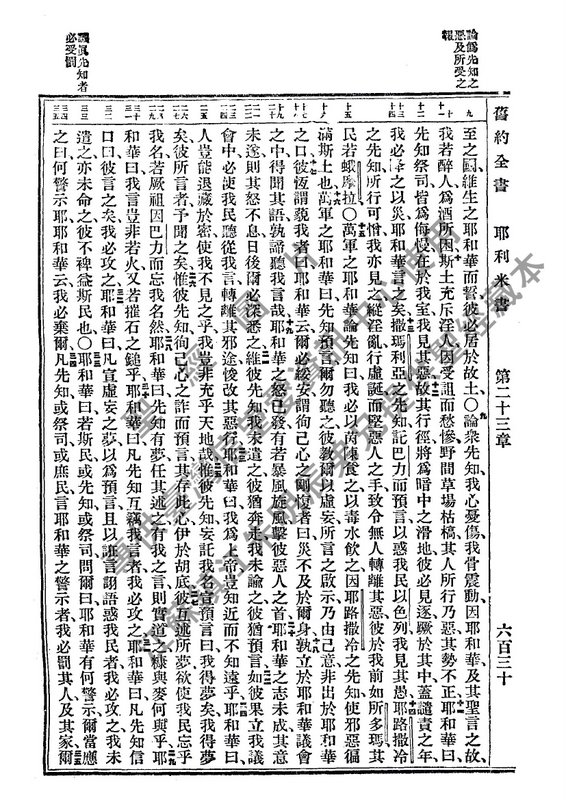 舊約全書 耶利米書 第二十三章 六百三十
論僞先知之
惡及所受之
報
至之國維生之耶和華而誓彼必居於故土○論衆先知我心憂傷我骨震動因耶和華及其聖言之故
我若醉人爲酒所困斯土充斥淫人因受詛而愁慘野間草場枯槁其人所行乃惡其勢不正耶和華曰
先知祭司皆爲侮慢在於我室我見其惡故其行徑將爲暗中之滑地彼必見逐蹶於其中蓋譴責之年
我必降之以災耶和華言之矣撒瑪利亞之先知記巴力而預言以惑我民以色列我見其愚耶路撒冷
之先知所行可憎我亦見之縱淫亂行虛誕而堅惡人之手致令無人轉離其惡彼於我前如所多瑪其
民若蛾摩拉○萬軍之耶和華論先知曰我必以茵蔯食之以毒水飲之因耶路撒冷之先知使邪惡徧
滿斯土也萬軍之耶和華曰先知預言爾勿聽之彼敎爾以虛妄所言之啟示乃由己意非出於耶和華
之口彼恆謂藐我者曰耶和華云爾必綏安謂徇己心之剛愎者曰災不及於爾身孰立於耶和華議會
之中得聞其語孰諦聽我言哉耶和華之怒已發有若暴風旋風擊彼惡人之首耶和華之志未成其意
未遂則其怒不息日後爾必深悉之維彼先知我未遣之彼猶奔走我未諭之彼猶預言如彼果立我議
會中必使我民聽從我言轉離其邪途悛改其惡行耶和華曰我爲上帝豈知近而不知遠乎耶和華曰
人豈能退藏於密使我不見之乎我豈非充乎天地哉惟彼先知妄託我名宣預言曰我得夢矣我得夢
矣彼所言者予聞之矣惟彼先知徇己心之詐而預言其存此心伊於胡底彼互述所夢欲使我民忘乎
我名若厥祖因巴力而忘我名然耶和華曰先知有夢任其述之有我之言則實道之糠與麥何與乎耶
和華曰我言豈非若火又若摧石之鎚乎耶和華曰凡先知互竊我言者我必攻之耶和華曰凡先知信
口曰彼言之矣我必攻之耶和華曰凡宣虛妄之夢以爲預言且以誑言詡語惑我民者我必攻之我未
遣之亦未命之彼不裨益斯民也○耶和華曰若斯民或先知或祭司問爾曰耶和華有何警示爾當應
之曰何警示耶耶和華云我必棄爾凡先知或祭司或庶民言耶和華之警示者我必罰其人及其家爾
眞先知者
必受罰